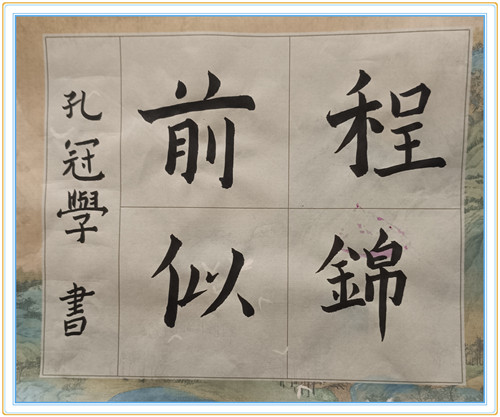 前程
似錦
孔冠學 書